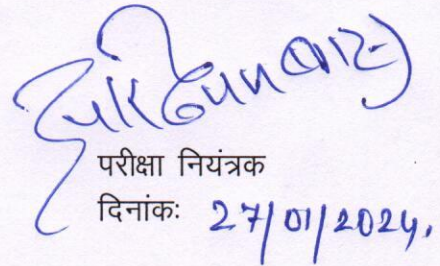 परीक्षा नियंत्रक
दिनांकः 27/01/2024.